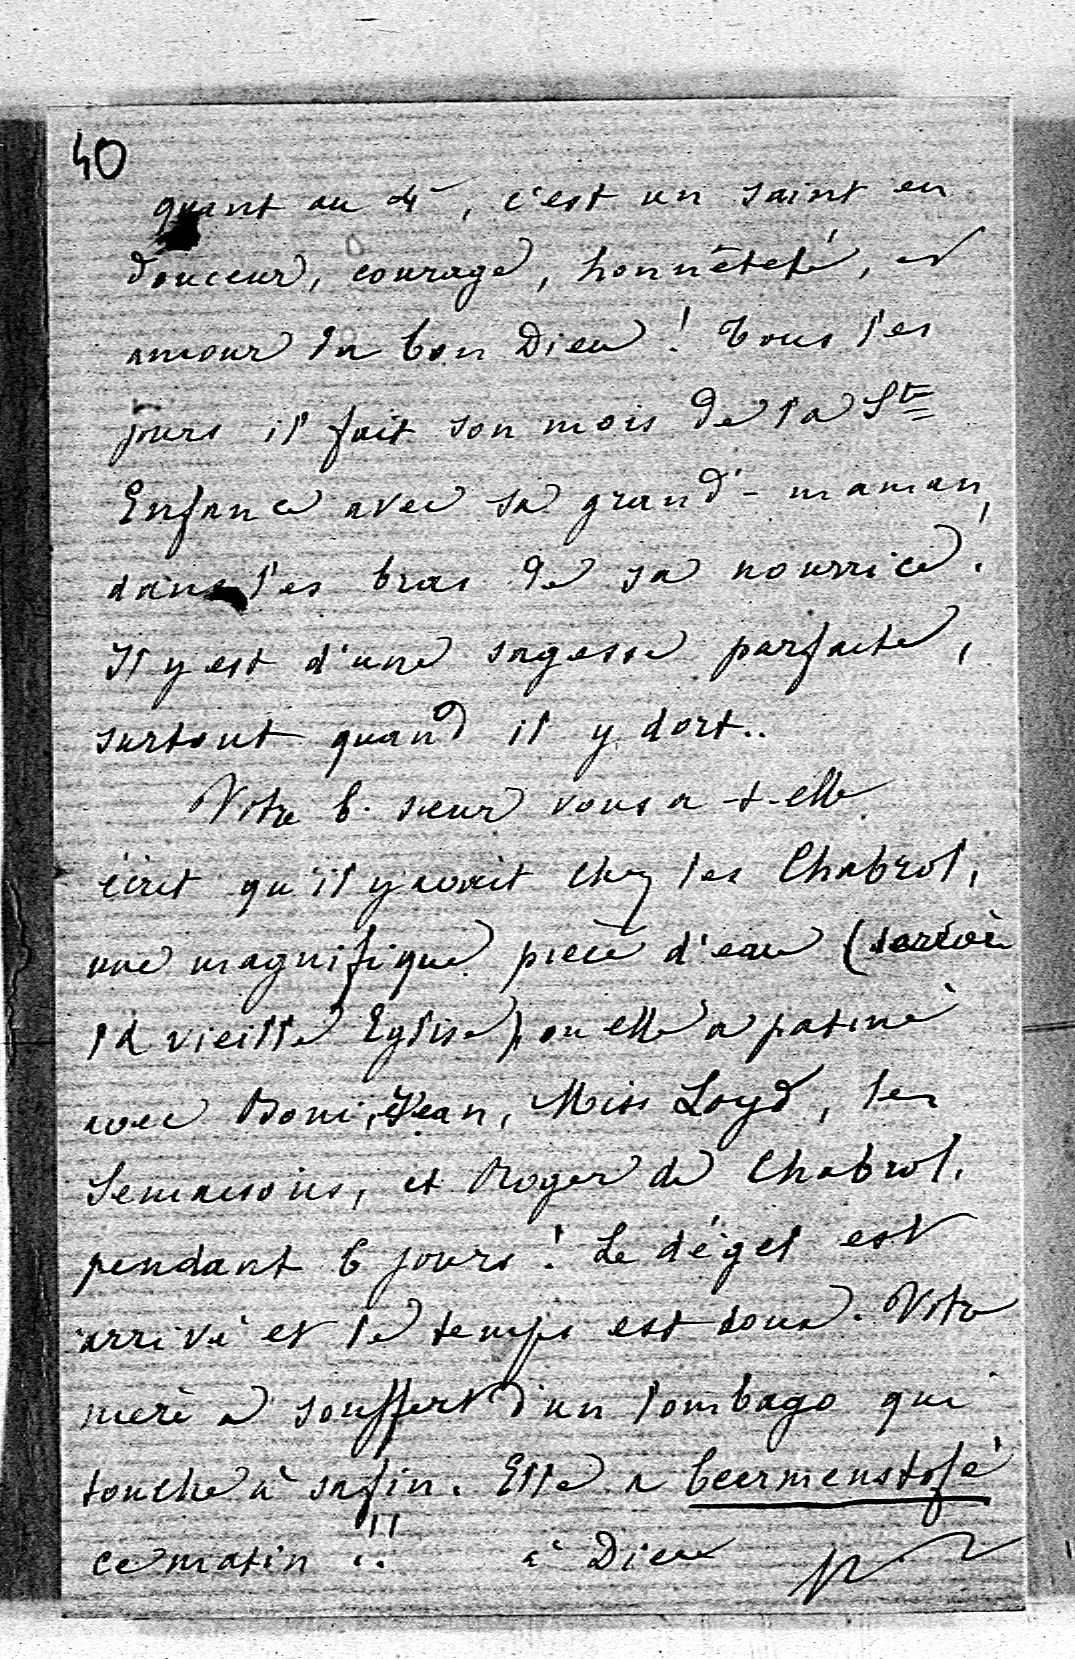 40
quant au 4e, c'est un saint en
douceur, courage, honnêteté, et
amour du bon Dieu ! Tous les
jours il fait son mois de la Ste
Enfance avec sa grand'-maman,
dans les bras de sa nourrice !
Il y est d'une sagesse parfaite,
surtout quand il y dort..
Votre b. sœur vous a-t-elle
écrit qu'il y avait chez les Chabrol,
une magnifique pièce d'eau (
la vieille Eglise), ou elle a patiné
avec Boni, Jean, Miss Loyd, les
Semaisons, et Roger de Chabrol,
pendant 6 jours ! Le dégel est
arrivé et le temps est doux. Votre
mère a souffert d'un lombago qui
touche à sa fin. Elle a
ce matin !! à Dieu